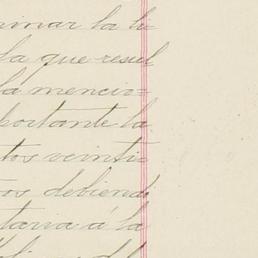 minar la li
la que resul
la mencio=
portante la
tos veinti=
ros debiend
taria á la